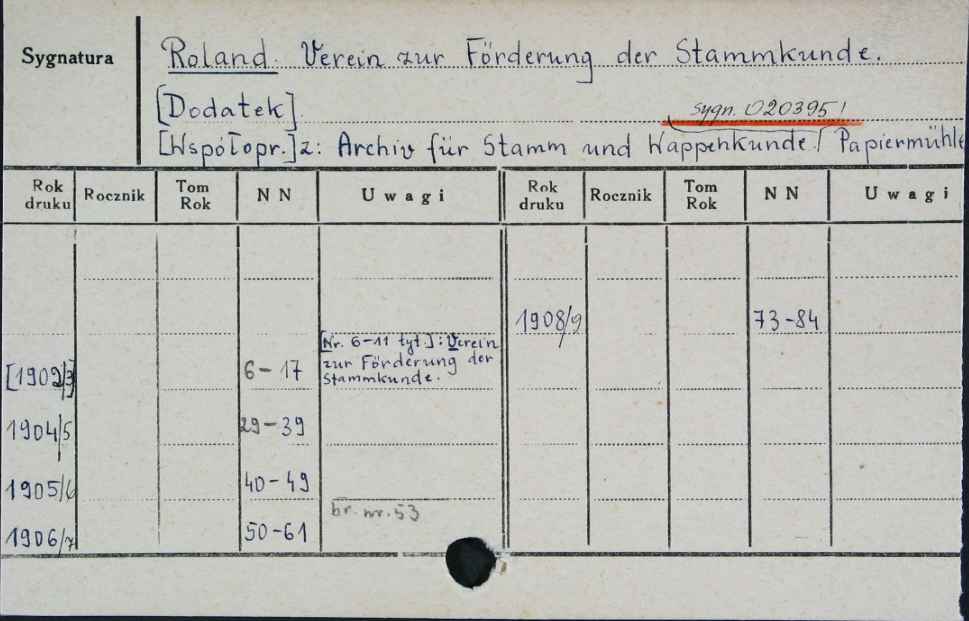 Sygnatura
Roland. Verein zur Förderung der Stammkunde.
[Dodatek]
sygn. 020395!
[Współopr.] z: Archiv für Stamm und Wappenkunde. Papiermühle
Rok druku Rocznik Tom Rok NN Uwagi Rok druku Rocznik Tom Rok NN Uwagi
1908/9 73-84
[Nr. 6-11 tyt.]: Verein
zur Förderung der
[1902/3] 6-17 Stammkunde.
1904/5 29-39
1905/6 40-49
br. nr. 53
1906/7 50-61